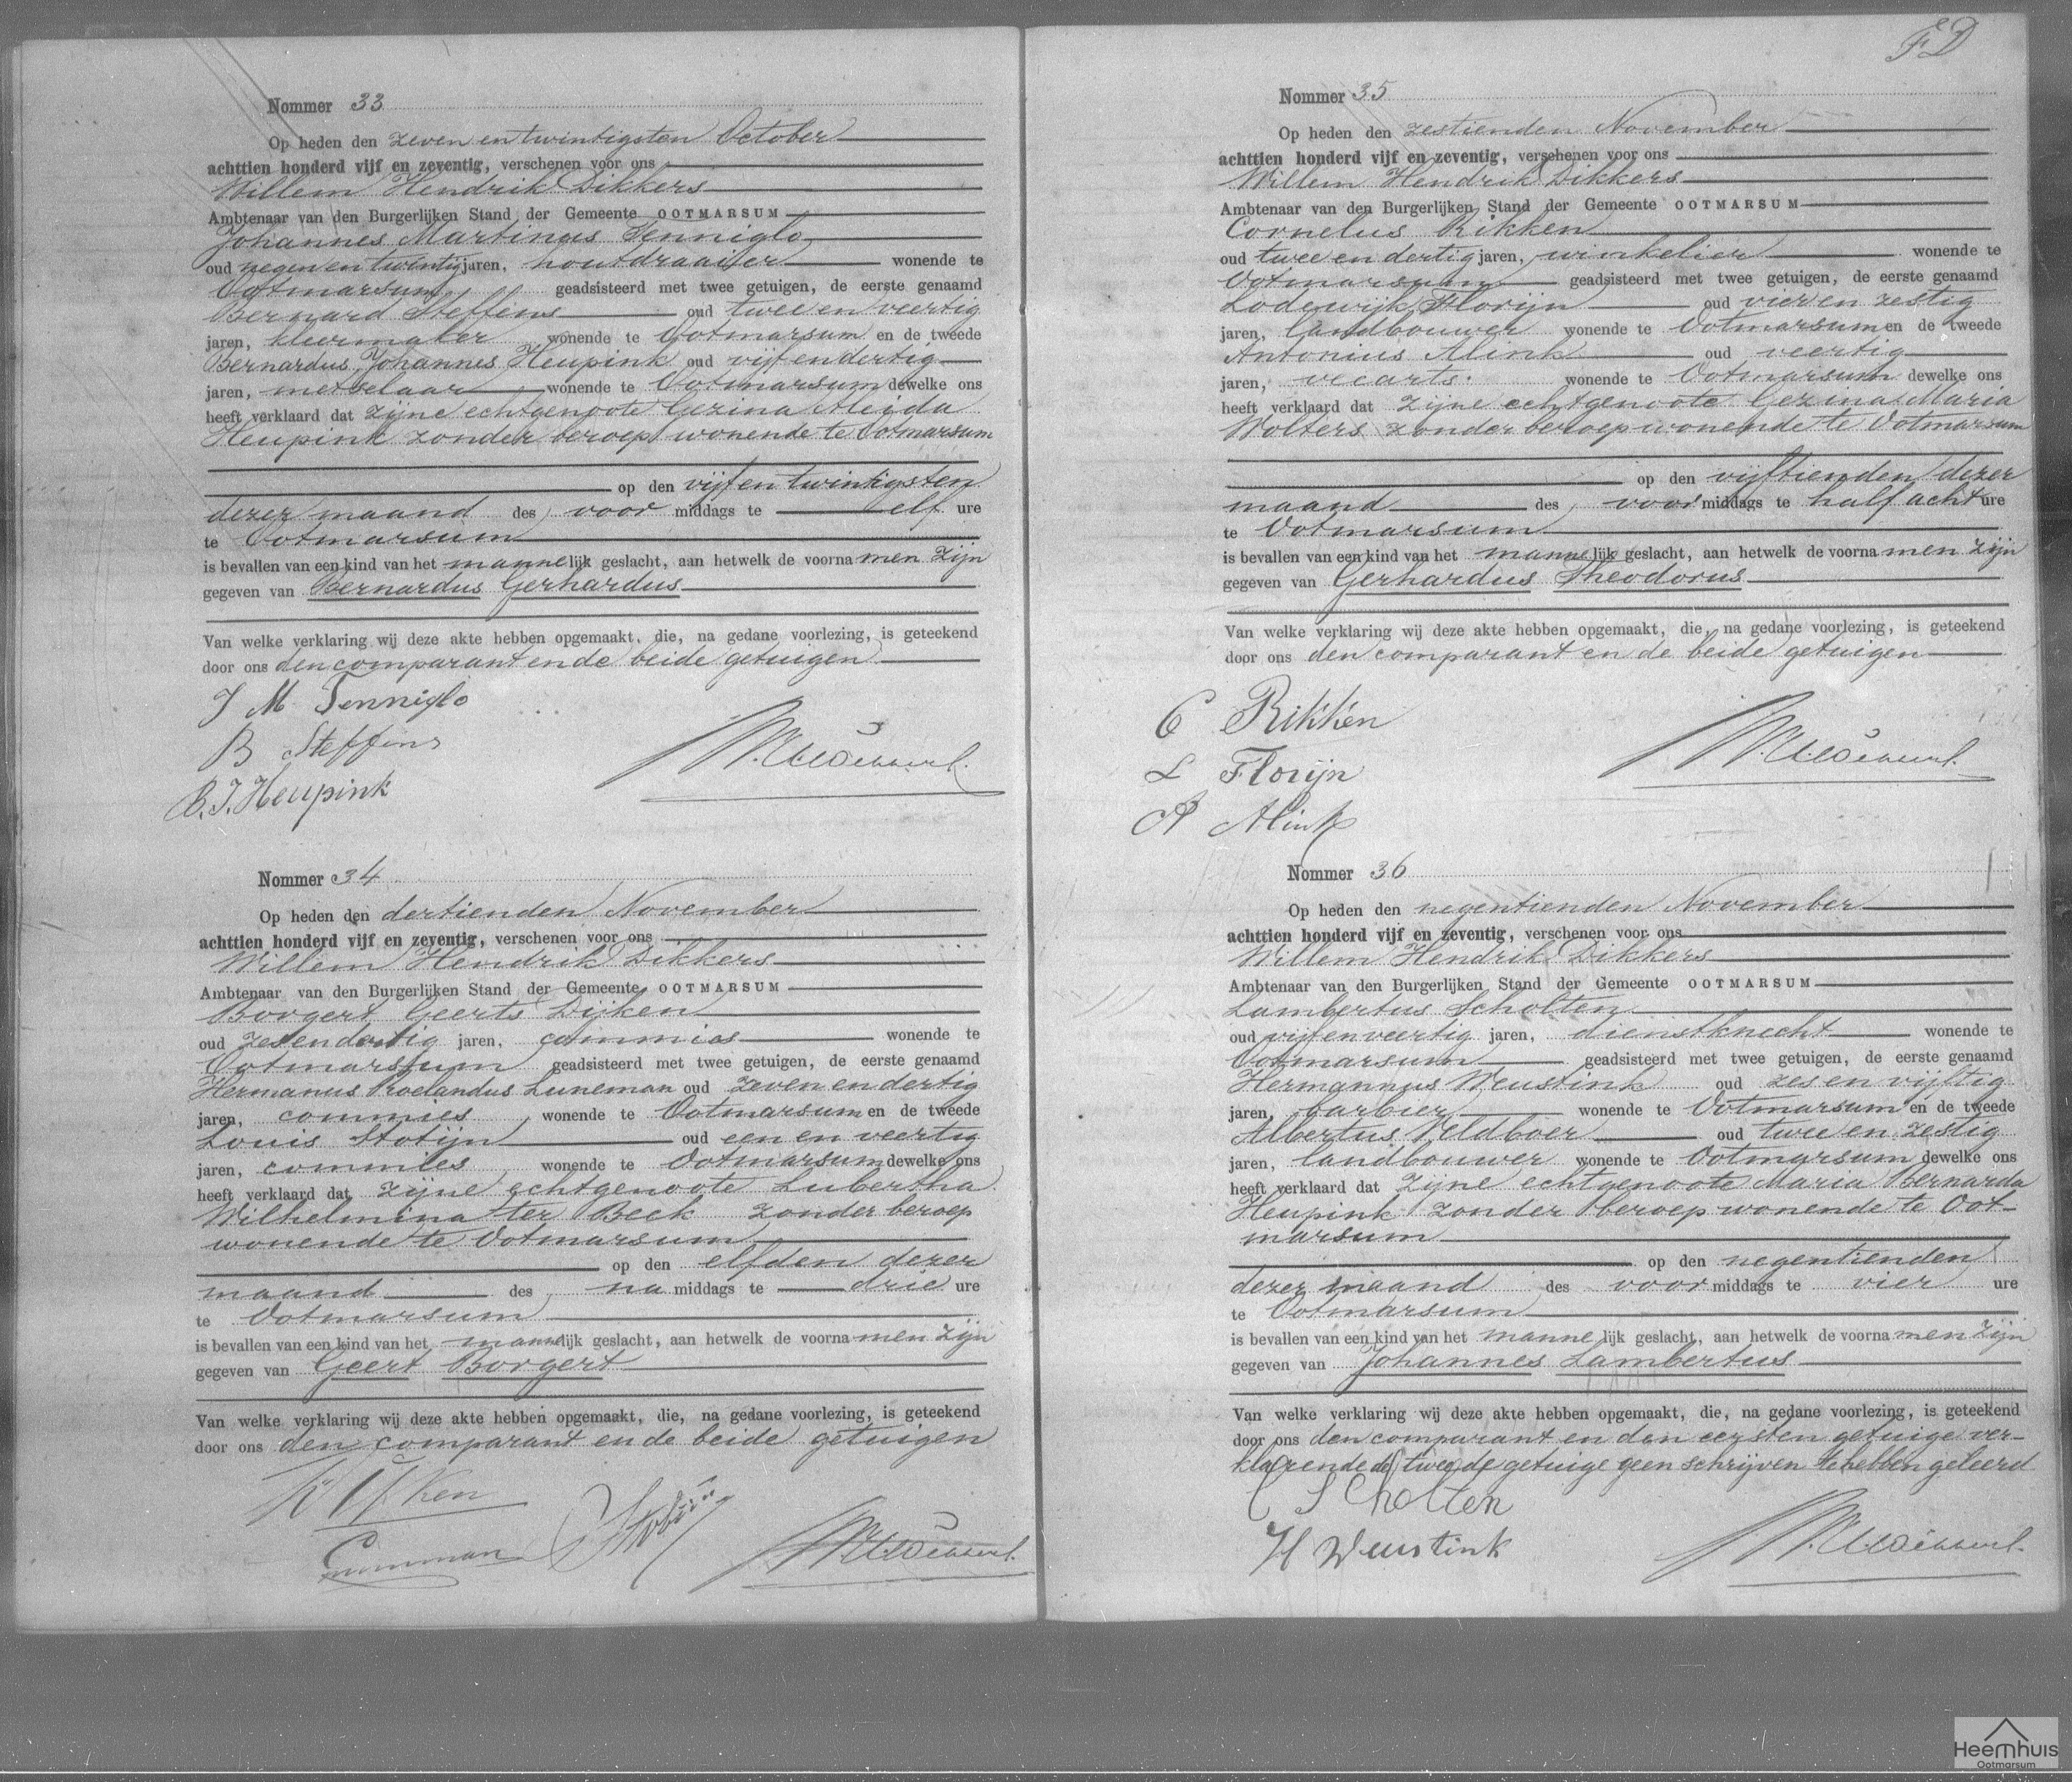 Nommer 33
Op heden den zeven en twintigsten October
achttien honderd vijf en zeventig, verschenen voor ons
Willem Hendrik Dikkers
Ambtenaar van den Burgerlijken Stand der Gemeente OOTMARSUM
Johannes Martinus Tenniglo
oud negen en twintig jaren, houtdraaijer wonende te
Ootmarsum geadsisteerd met twee getuigen, de eerste genaamd
Bernard Steffens oud twee en veertig
jaren, kleermaker wonende te Ootmarsum en de tweede
Bernardus Johannes Heupink oud vijf en dertig
jaren, metselaar wonende te Ootmarsum dewelke ons
heeft verklaard dat zijne echtgenoote Gezina Aleida
Heupink zonder beroep wonende te Ootmarsum
op den vijf en twintigsten
dezer maand des voor middags te elf ure
te Ootmarsum
is bevallen van een kind van het mannelijk geslacht, aan hetwelk de voornamen zijn
gegeven van Bernardus Gerhardus
Van welke verklaring wij deze akte hebben opgemaakt, die, na gedane voorlezing, is geteekend
door ons den comparant en de beide getuigen
J M Tenniglo
B Steffens
B. J. Heupink
Nommer 34
Op heden den dertienden November
achttien honderd vijf en zeventig, verschenen voor ons
Willem Hendrik Dikkers
Ambtenaar van den Burgerlijken Stand der Gemeente OOTMARSUM
Borgert Geerts Dijken
oud zesendertig jaren, commies wonende te
Ootmarsum geadsisteerd met twee getuigen, de eerste genaamd
Hermanus Roelandus Luneman oud zeven en dertig
jaren, commies wonende te Ootmarsum en de tweede
Louis Stotijn oud een en veertig
jaren, commies wonende te Ootmarsum dewelke ons
heeft verklaard dat zijne echtgenoote Lubertha
Wilhelmina ter Beek zonder beroep
wonende te Ootmarsum
op den elfden dezer
maand des na middags te drie ure
te Ootmarsum
is bevallen van een kind van het mannelijk geslacht, aan hetwelk de voornamen zijn
gegeven van Geert Borgert
Van welke verklaring wij deze akte hebben opgemaakt, die, na gedane voorlezing, is geteekend
door ons den comparant en de beide getuigen
FD
Nommer 35
Op heden den zestienden November
achttien honderd vijf en zeventig, verschenen voor ons
Willem Hendrik Dikkers
Ambtenaar van den Burgerlijken Stand der Gemeente OOTMARSUM
Cornelus Rikken
oud twee en dertig jaren, winkelier wonende te
Ootmarsum geadsisteerd met twee getuigen, de eerste genaamd
Lodewijk Florijn oud vier en zestig
jaren, landbouwer wonende te Ootmarsum en de tweede
Antonius Alink oud veertig
jaren, veearts wonende te Ootmarsum dewelke ons
heeft verklaard dat zijne echtgenoote Gezina Maria
Wolters zonder beroep wonende te Ootmarsum
op den vijftienden dezer
maand des voor middags te half acht ure
te Ootmarsum
is bevallen van een kind van het mannelijk geslacht, aan hetwelk de voornamen zijn
gegeven van Gerhardus Theodorus
Van welke verklaring wij deze akte hebben opgemaakt, die, na gedane voorlezing, is geteekend
door ons den comparant en de beide getuigen
C Rikken
L Florijn
A Alink
Nommer 36
Op heden den negentienden November
achttien honderd vijf en zeventig, verschenen voor ons
Willem Hendrik Dikkers
Ambtenaar van den Burgerlijken Stand der Gemeente OOTMARSUM
Lambertus Scholten
oud vijf en veertig jaren, dienstknecht wonende te
Ootmarsum geadsisteerd met twee getuigen, de eerste genaamd
Hermannus Weustink oud zes en vijftig
jaren, barbier wonende te Ootmarsum en de tweede
Albertus Veldboer oud twee en zestig
jaren, landbouwer wonende te Ootmarsum dewelke ons
heeft verklaard dat zijne echtgenoote Maria Bernarda
Heupink zonder beroep wonende te Oot-
marsum
op den negentienden
dezer maand des voor middags te vier ure
te Ootmarsum
is bevallen van een kind van het mannelijk geslacht, aan hetwelk de voornamen zijn
gegeven van Johannes Lambertus
Van welke verklaring wij deze akte hebben opgemaakt, die, na gedane voorlezing, is geteekend
door ons den comparant en den eersten getuige ver-
klarende de tweede getuige geen schrijven te hebben geleerd
L Scholten
H Weustink
Heemhuis
Ootmarsum